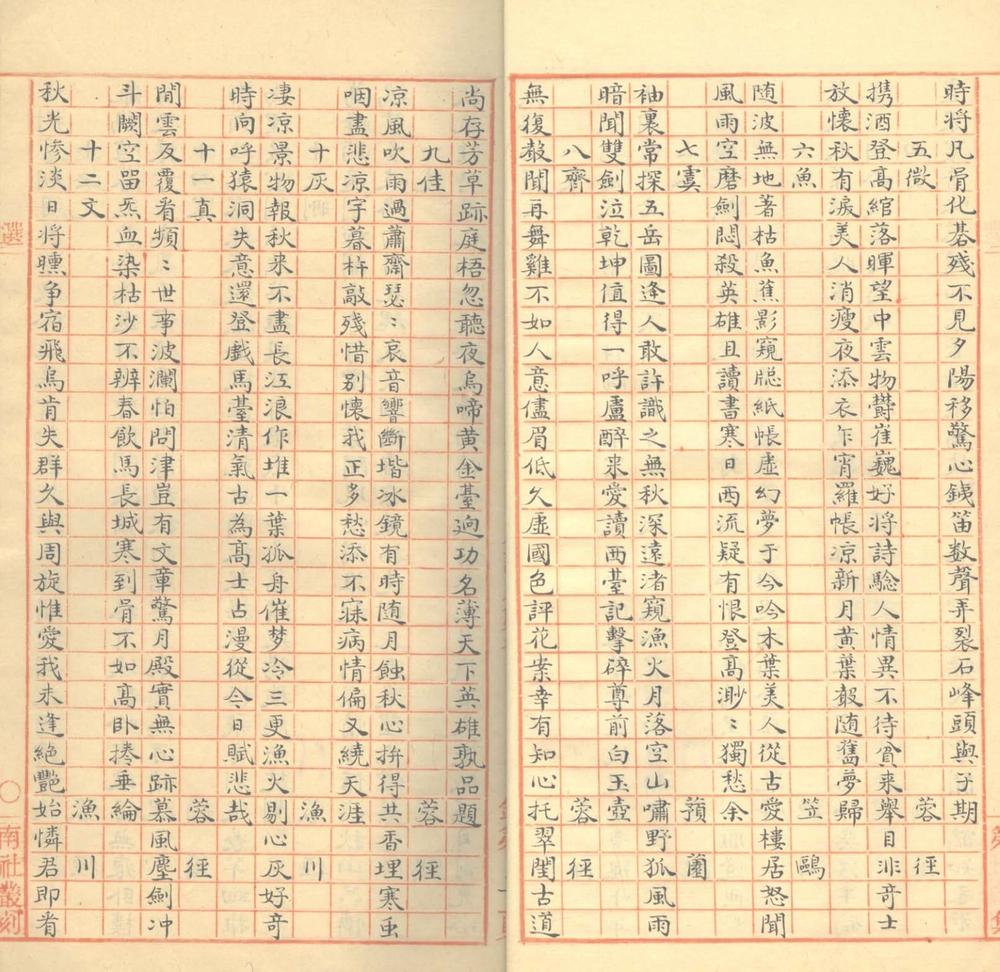 時将凡骨化碁殘不見夕陽移驚心銕笛数聲弄裂石峰頭與子期
五微 蓉徑
携酒登髙綰落暉望中雲物欝崔巍好将詩驗人情異不待貧来舉目非奇士
放懷秋有淚美人消瘦夜添衣乍宵羅帳凉新月黄葉聲随舊夢歸
六魚 笠鷗
随波無地著枯魚蕉影窺牕紙帳虛幻夢于今吟木葉美人從古愛樓居怒聞
風雨空磨劍悶殺英雄且讀書寒日西流疑有恨登髙渺〻獨愁余
七虞 蘭
袖裏常探五岳圖逢人敢許識之無秋深遠渚窺漁火月落空山嘯野狐風雨
暗聞雙劍泣乾坤值得一呼盧醉来愛讀西臺記擊碎尊前白玉壺
八齊 蓉徑
無復聲聞再舞雞不如人意儘眉低久虛國色評花案幸有知心托翠閨古道
尚存芳草跡庭梧忽聽夜烏啼黄金臺迥功名薄天下英雄孰品題
九佳 蓉徑
凉風吹雨過蕭齋瑟〻哀音響斷堦冰鏡有時随月蝕秋心拚得共香埋寒虫
咽盡悲凉字暮杵敲殘惜别懷我正多愁添不寐病情偏又繞天涯
十灰 漁川
凄凉景物報秋来不盡長江浪作堆一葉孤舟催梦冷三更漁火剔心灰好奇
時向呼猿洞失意還登戲馬臺清氣古為髙士占漫從今日賦悲哉
十一真 蓉徑
閒雲反覆看頻〻世事波瀾怕問津豈有文章驚月殿實無心跡慕風塵劍冲
斗闕空留炁血染枯沙不辨春飲馬長城寒到骨不如髙卧捲垂綸
十二文 漁川
秋光惨淡日将曛争宿飛烏肯失群久與周旋惟愛我未逢絶艷始憐君即看
選 南社叢刻